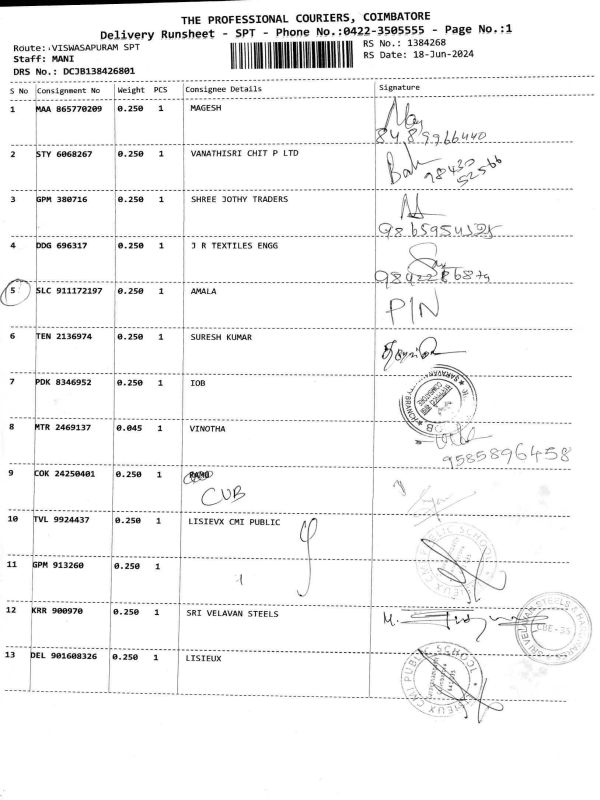 THE PROFESSIONAL COURIERS, COIMBATORE
Delivery Runsheet - SPT - Phone No.:0422-3505555 - Page No.:1
Route:.VISWASAPURAM SPT
RS No.: 1384268
Staff: MANI
RS Date: 18-Jun-2024
DRS No.: DCJB138426801
S No Consignment No Weight PCS Consignee Details Signature
1 MAA 865770209 0.250 1 MAGESH
8489966440
2 STY 6068267 0.250 1 VANATHISRI CHIT P LTD
98430
52566
3 GPM 380716 0.250 1 SHREE JOTHY TRADERS
4 DDG 696317 0.250 1 J R TEXTILES ENGG
5 SLC 911172197 0.250 1 AMALA
PIN
6 TEN 2136974 0.250 1 SURESH KUMAR
7 PDK 8346952 0.250 1 IOB
8 MTR 2469137 0.045 1 VINOTHA
9585896458
9 COK 24250401 0.250 1
CUB
10 TVL 9924437 0.250 1 LISIEVX CMI PUBLIC
11 GPM 913260 0.250 1
12 KRR 900970 0.250 1 SRI VELAVAN STEELS
CBE-35
13 DEL 901608326 0.250 1 LISIEUX
LISIEUX CMI PUBLIC SCHOOL